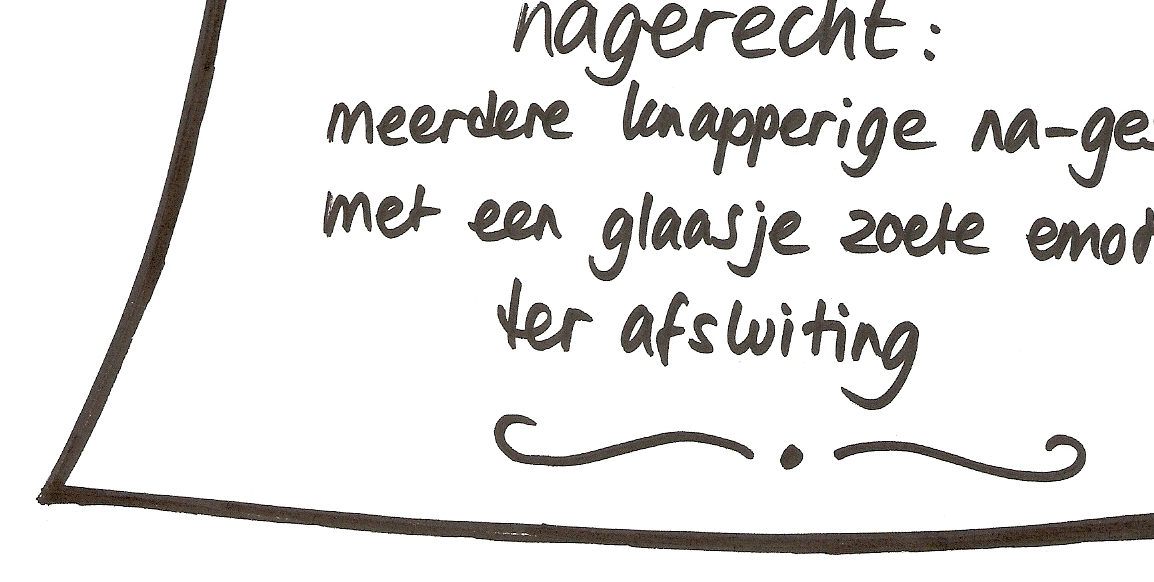 nagerecht:
meerdere knapperige na-ge
met een glaasje zoete
ter afsluiting